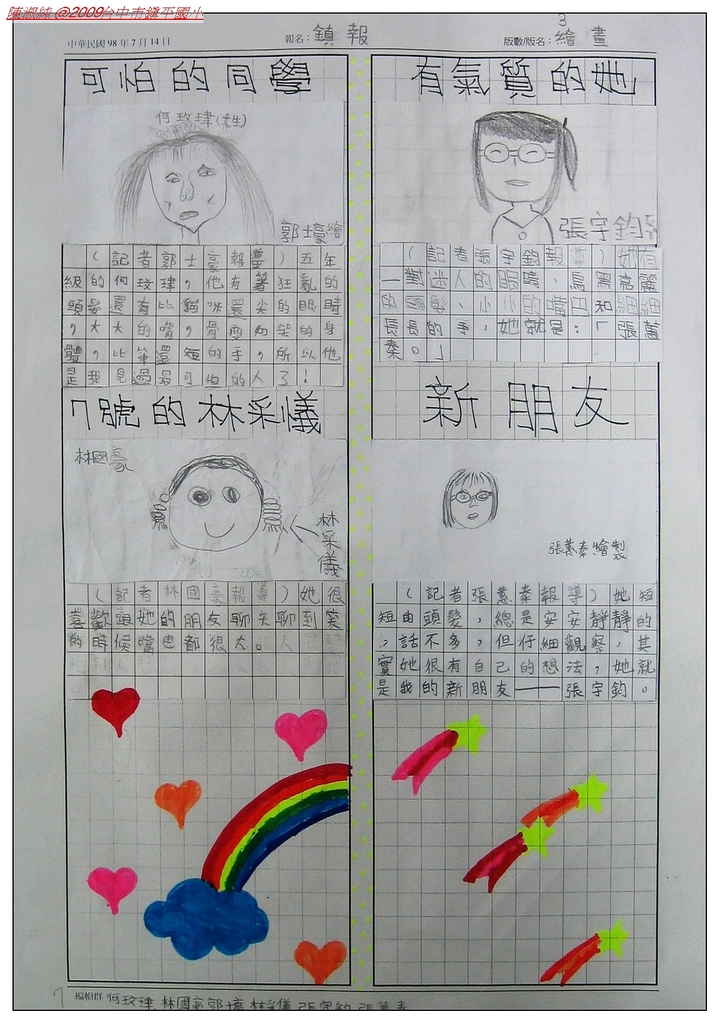 陳淑純@2009台中市鎮平國小
中華民國 98 年 7 月 14 日
報名：鎮報
版數/版名：3 繪畫
可怕的同學
何玫瑋(女生)
郭士豪繪
(記者郭士豪報導)五年
級的何玫瑋，他有著狂亂的
頭髮還有比貓咪還尖的眼睛
，大大的嘴，骨瘦如柴的身
體，比筆還短的手，所以他
是我見過最可怕的人了！
7號的林采儀
林國豪
林采儀
(記者林國豪報導)她很
喜歡跟她的朋友聊天聊到
的時候嘴巴都很大。
有氣質的她
張宇鈞
(記者張宇鈞報導)她有
一對迷人的眼睛、烏黑亮麗
的頭髮、小小的嘴巴和細細
長長的手，她就是：「張蕙
秦。」
新朋友
張蕙秦繪製
(記者張蕙秦報導)她短
短由頭髮，總是安安靜靜的
，話不多，但仔細觀察，其
實她很有自己的想法，她就
是我的新朋友——張宇鈞。
編輯群 何玫瑋 林國豪 郭士豪 林采儀 張宇鈞 張蕙秦